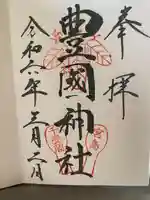 奉拝
豊國神社
令和六年三月二日